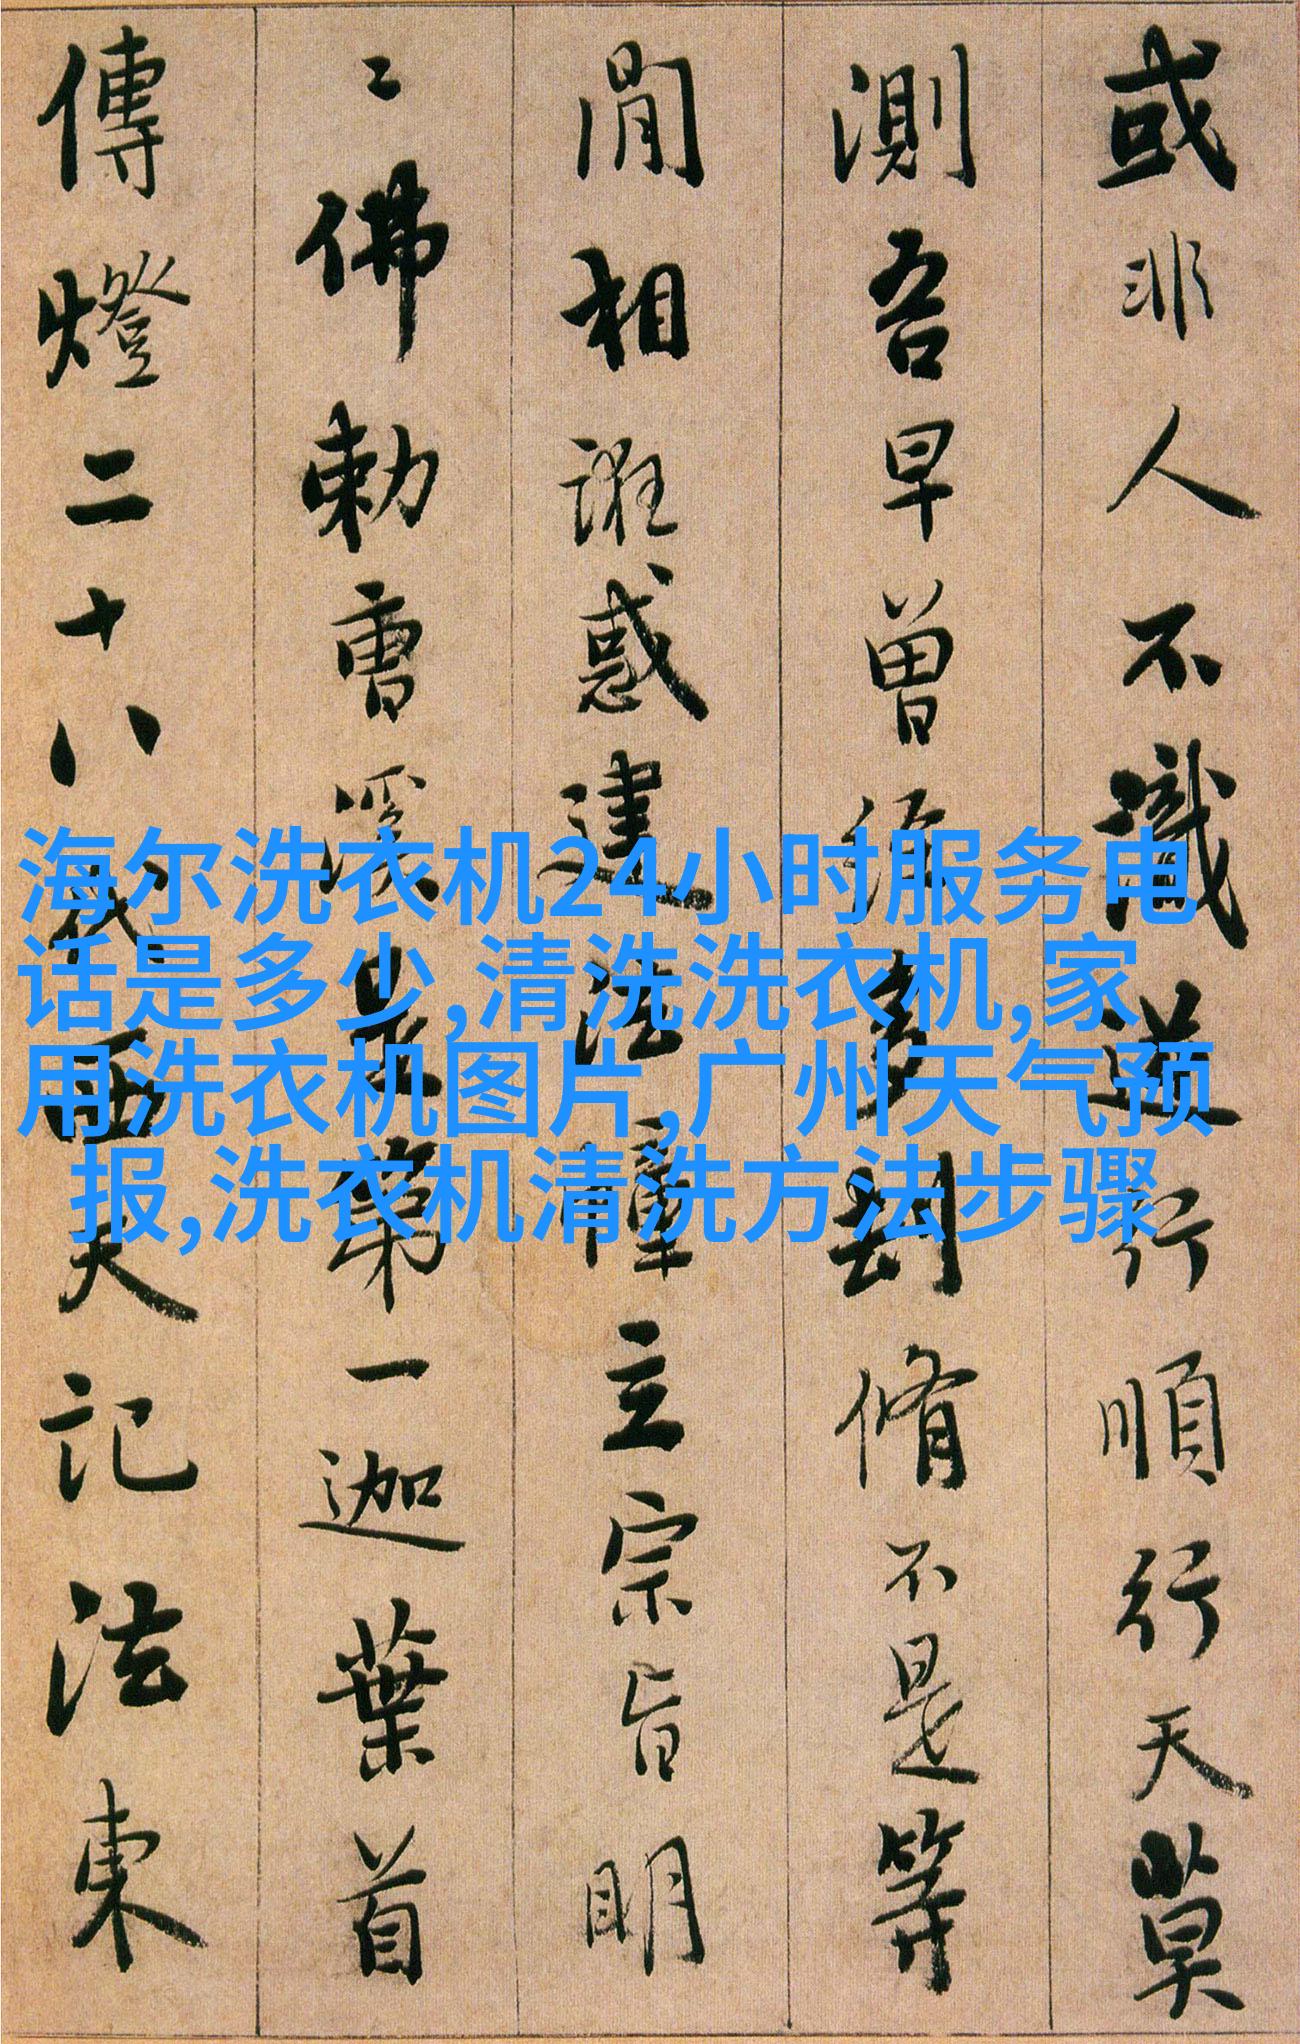 或非人不識逆行順行天莫
測吾早曾經多劫脩不是等
閒相誑惑建法幢立宗旨明
〻佛勅曹溪是第一迦葉首
傳燈二十八代西天記法東
海尔洗衣机24小时服务电
话是多少,清洗洗衣机,家
用洗衣机图片,广州天气预
报,洗衣机清洗方法步骤